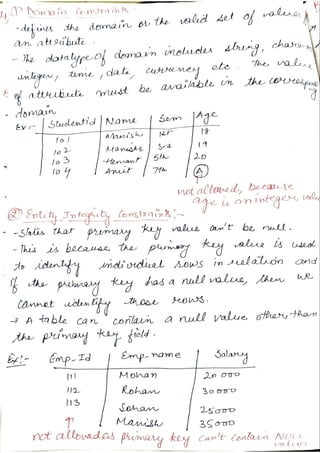 (1) Domain Constraints :-
- defines the domain or the valid set of values
an attribute.
- The datatype of domain includes string, charac
integer, time, date, currency etc. The value
of attribute must be available in the correspond
domain
Ex:- Studentid Name Sem Age
101 Manish 1st 18
102 Manisha 3rd 19
103 Hemant 5th 20
104 Ankit 7th A
not allowed, because
age is an integer value
(2) Entity Integrity Constraints:-
- States that primary key value can't be null.
- This is because the primary key value is used
to identify individual rows in relation and
if the primary key has a null value, then we
cannot identify those rows.
→ A table can contain a null value other than
the primary key field.
Ex:- Emp_Id Emp_name Salary
111 Mohan 20000
112 Rohan 30000
113 Sohan 25000
Manish 35000
not allowed as primary key can't contain NULL
values